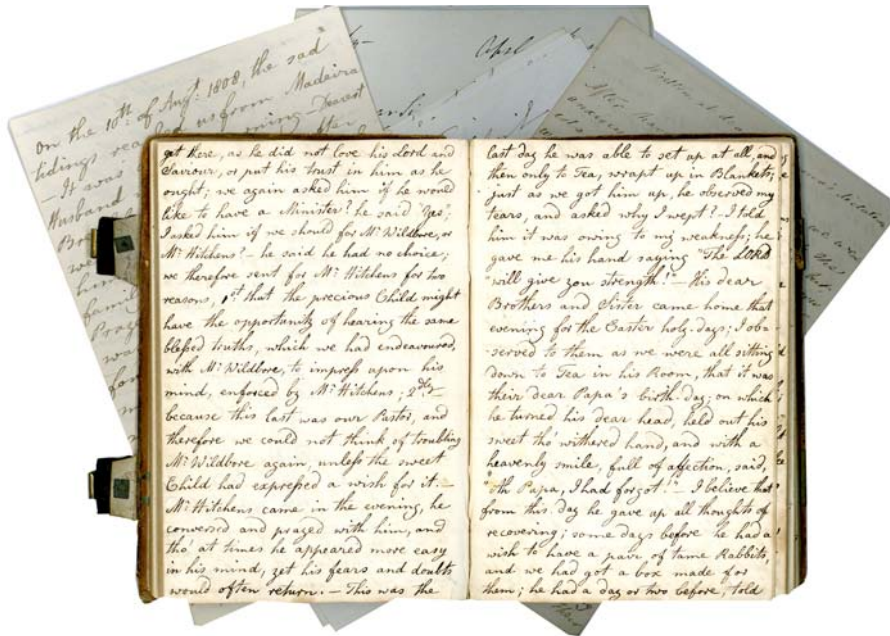 On the 10th. of Augt. 1808, the sad
tidings rea us from Madeira
- It was ning - Dearest
Husband
get there, as he did not love his Lord and
Saviour, or put his trust in him as he
ought; we again asked him if he would
like to have a Minister? he said "Yes;"
I asked him if we should for Mr. Wildbore, or
Mr. Hitchens? - he said he had no choice;
we therefore sent for Mr. Hitchens for two
reasons, 1st. that the precious Child might
have the opportunity of hearing the same
blessed truths, which we had endeavoured,
with Mr. Wildbore, to impress upon his
mind, enforced by Mr. Hitchens; 2dly.
because this last was our Pastor, and
therefore we could not think of troubling
Mr. Wildbore again, unless the sweet
Child had expressed a wish for it. -
Mr. Hitchens came in the evening, he
conversed and prayed with him, and
tho' at times he appeared more easy
in his mind, yet his fears and doubts
would often return. - This was the
last day he was able to set up at all, and
then only to Tea, wrapt up in Blankets;
just as we got him up, he observed my
tears, and asked why I wept? - I told
him it was owing to my weakness; he
gave me his hand saying "The LORD
"will give you strength!" - His dear
Brothers and Sister came home that
evening for the Easter holy-days; I ob=
-served to them as we were all sitting
down to Tea in his Room, that it was
their dear Papa's birth-day; on which
he turned his dear head, held out his
sweet tho' withered hand, and with a
heavenly smile, full of affection, said,
"oh Papa, I had forgot!" - I believe that
from this day he gave up all thoughts of
recovering; some days before he had a
wish to have a pair of tame Rabbits,
and we had got a box made for
them; he had a day or two before, told